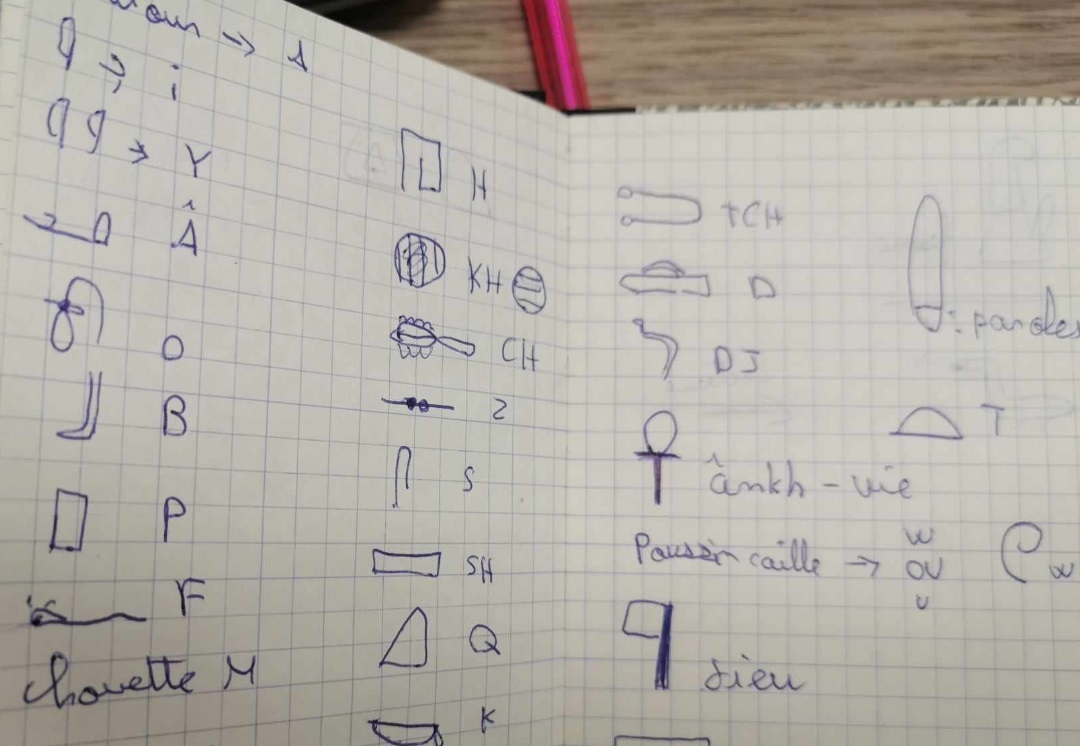 → A
→ i
→ Y
Â
O
B
P
F
Chouette M
H
KH
CH
Z
S
SH
Q
K
TCH
D
DJ
ânkh - vie
Poussin caille → W
OU
U
dieu
: paroles
T
W